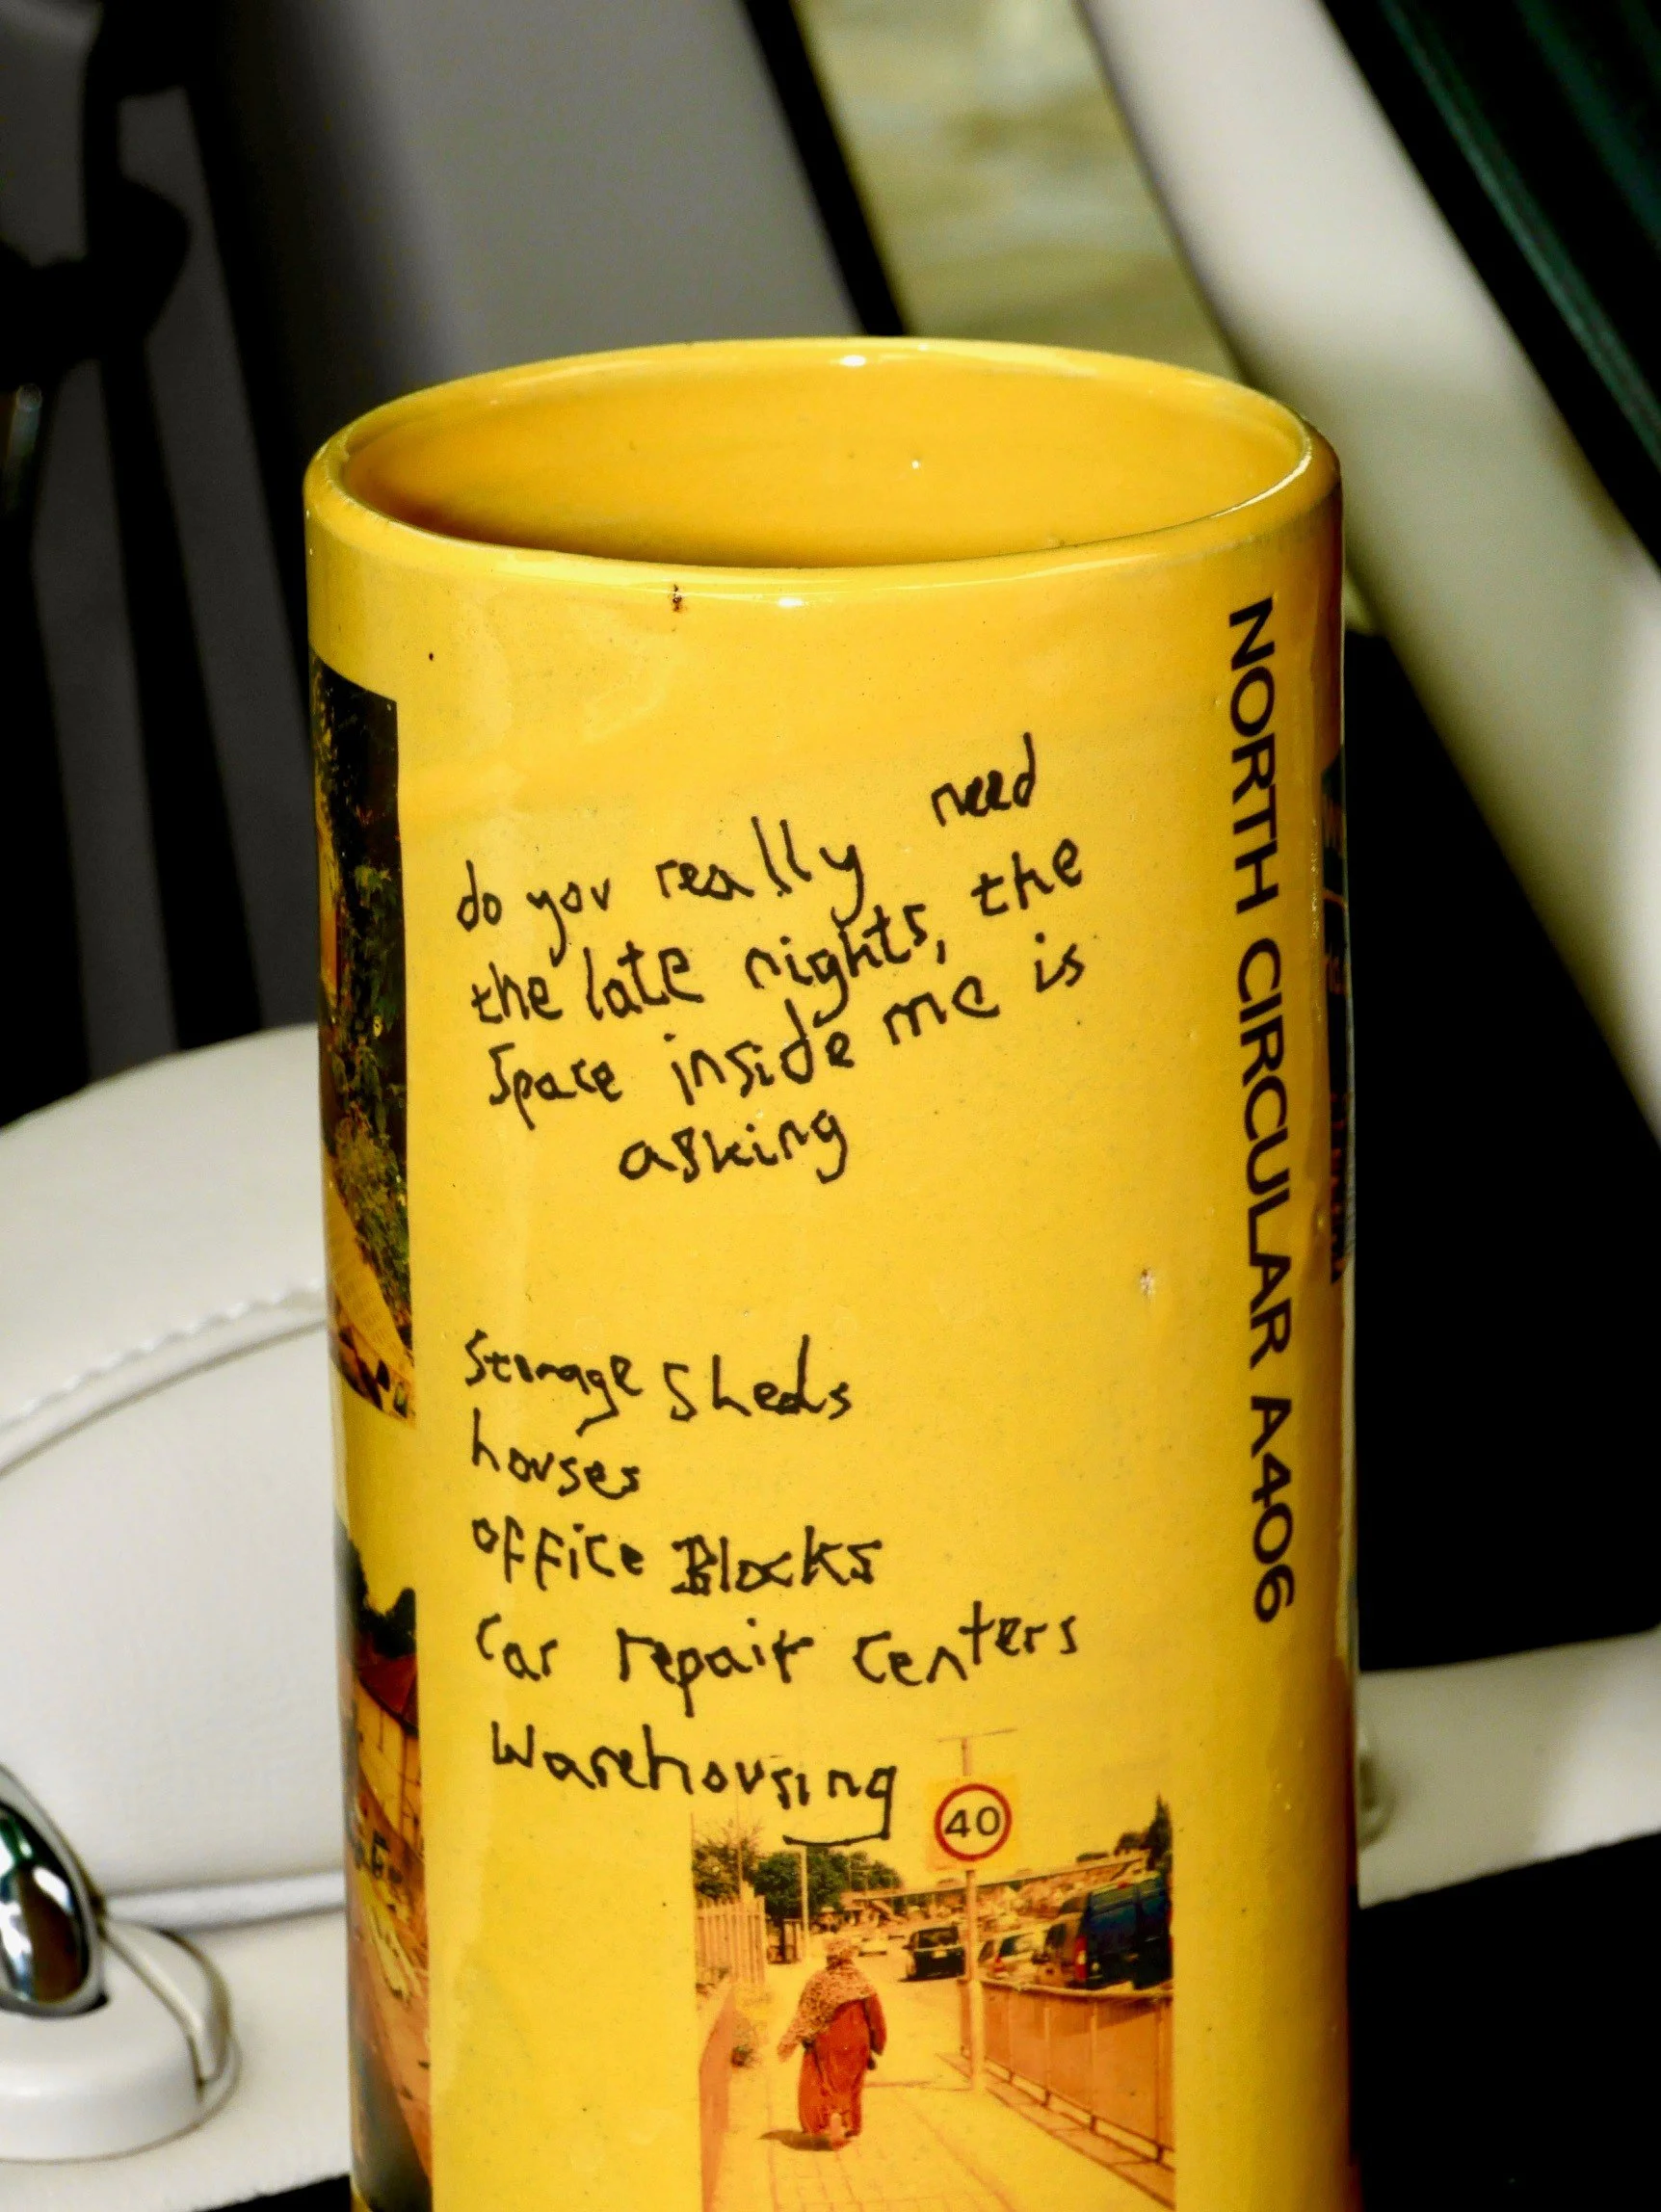 do you really need
the late nights, the
Space inside me is
asking
Storage Sheds
houses
office Blocks
Car repair Centers
Warehousing
40
NORTH CIRCULAR A406